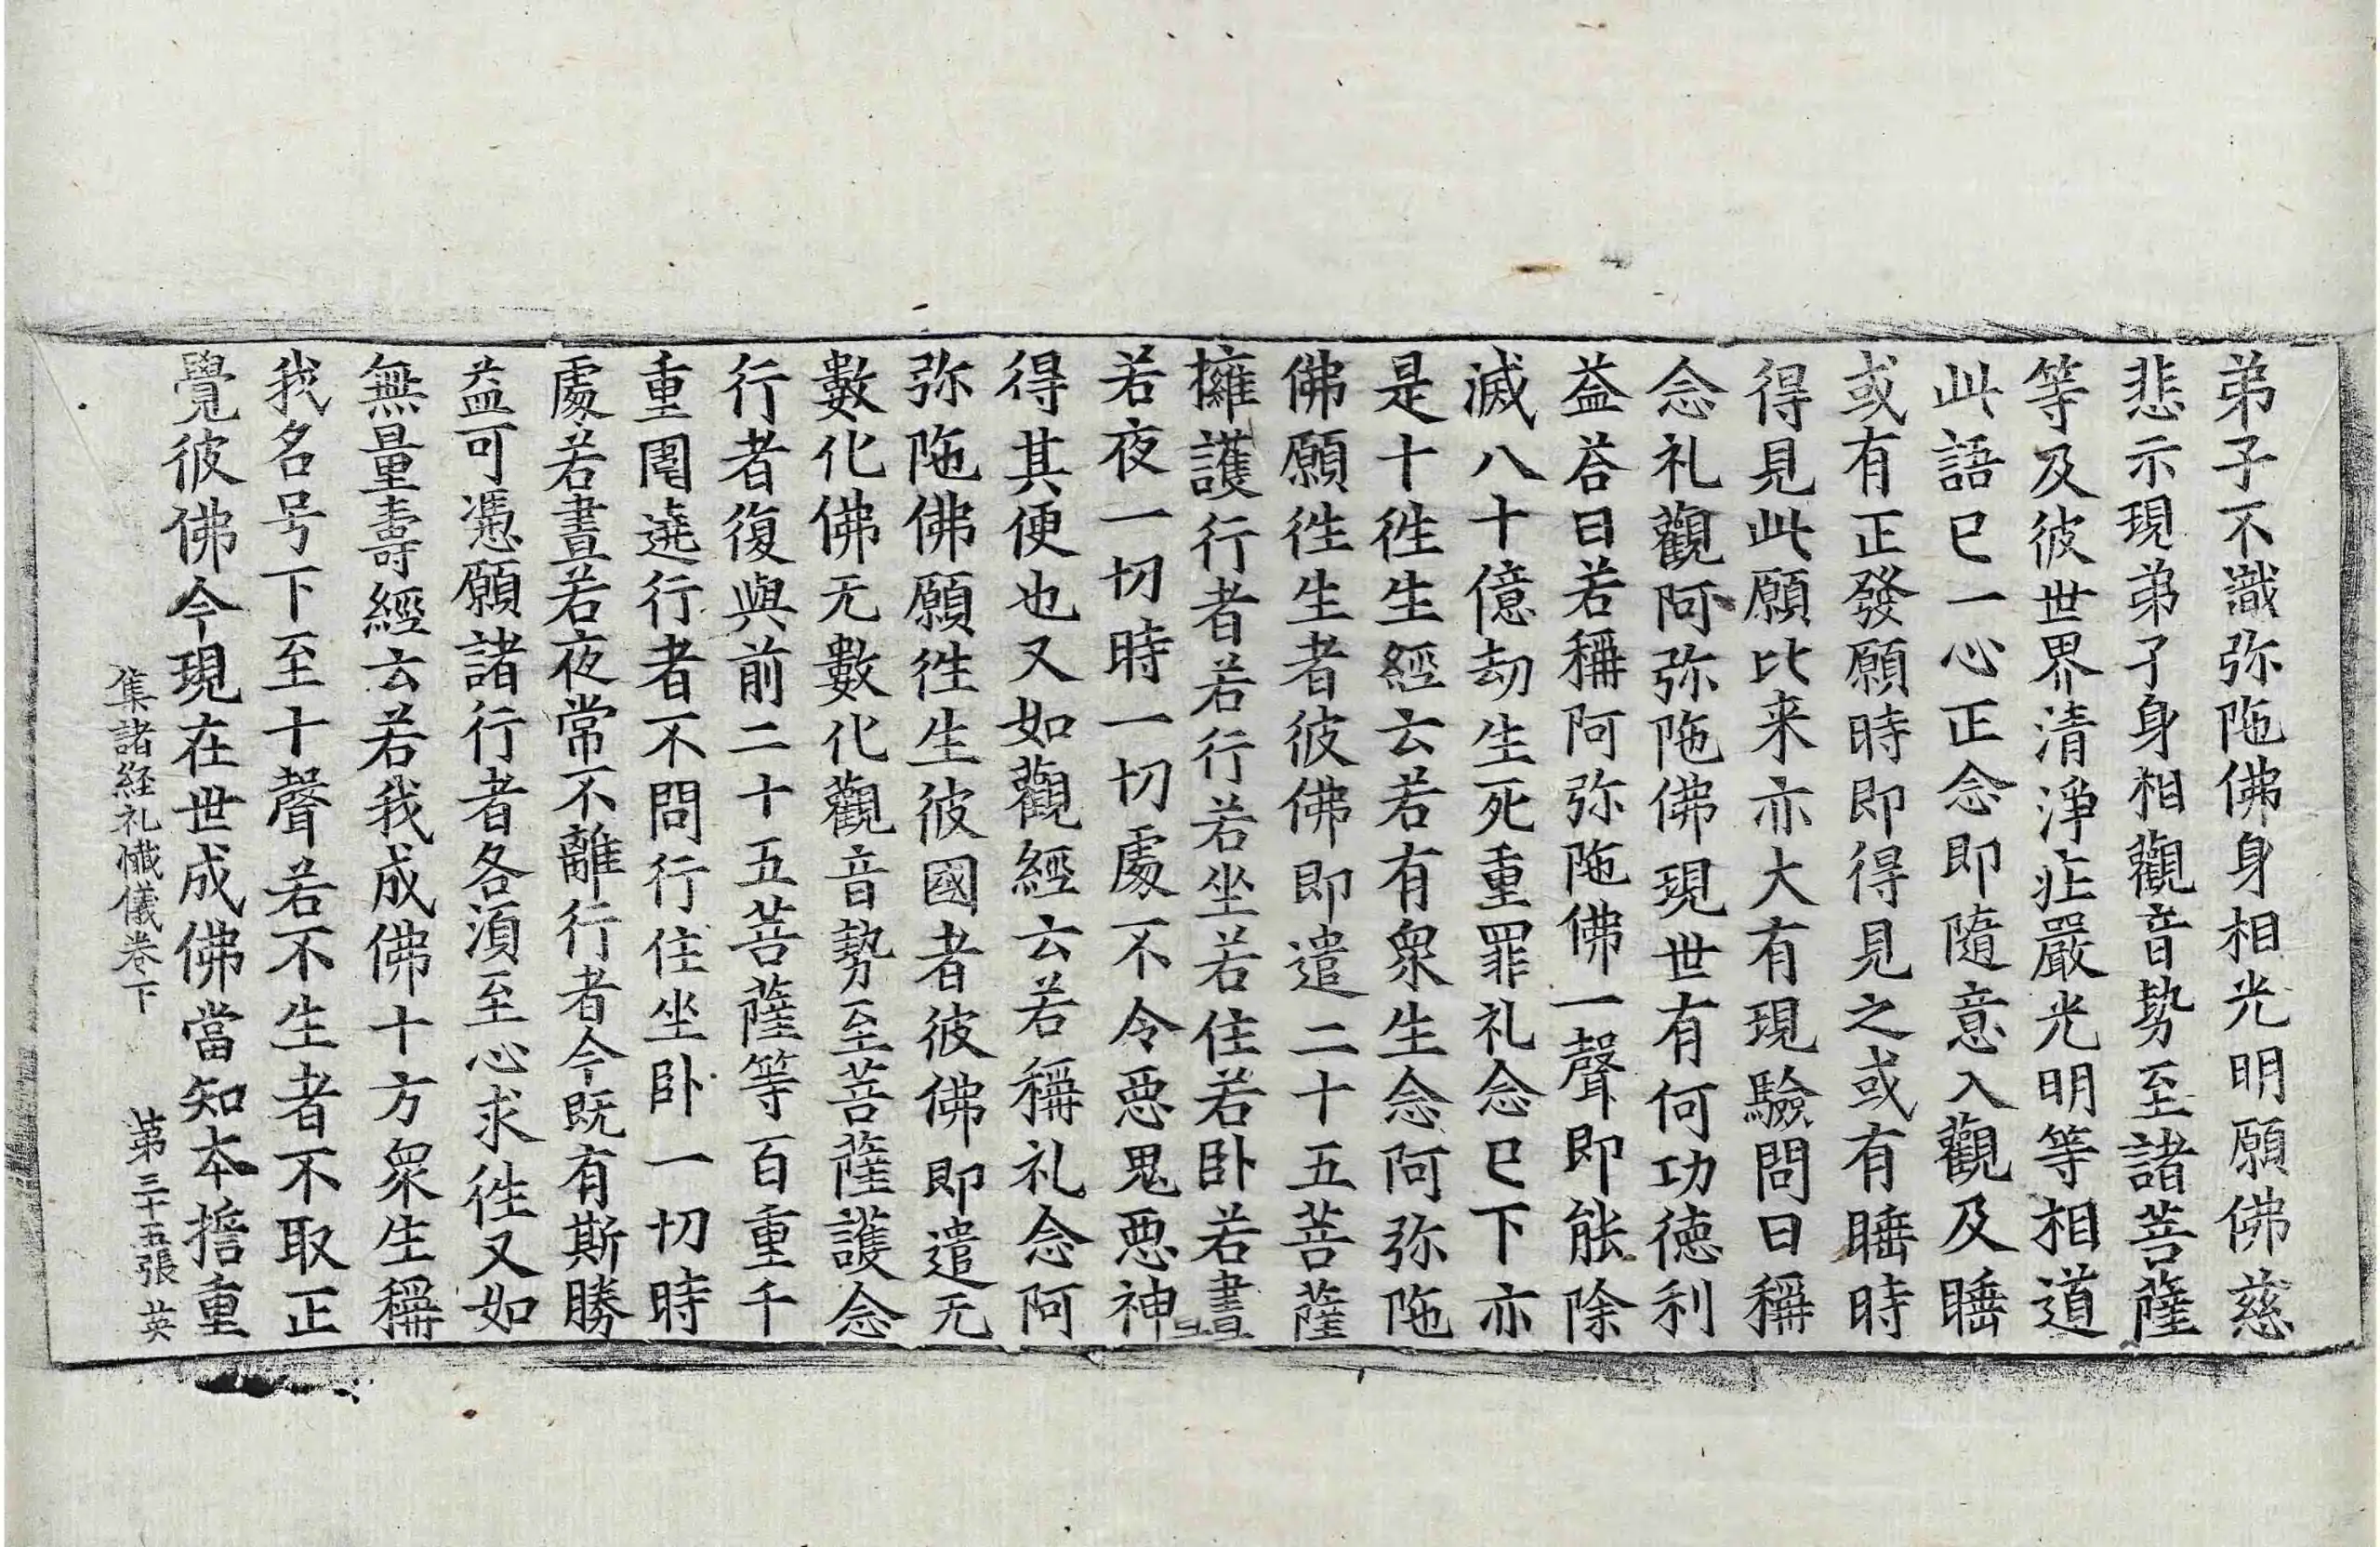 弟子不識弥陁佛身相光明願佛慈
悲示現弟子身相觀音勢至諸菩薩
等及彼世界清淨庄嚴光明等相道
此語已一心正念即隨意入觀及睡
或有正發願時即得見之或有睡時
得見此願比来亦大有現驗問曰稱
念礼觀阿弥陁佛現世有何功德利
益荅曰若稱阿弥陁佛一聲即能除
滅八十億劫生死重罪礼念已下亦
是十徃生經云若有衆生念阿弥陁
佛願徃生者彼佛即遣二十五菩薩
擁護行者若行若坐若住若卧若晝
若夜一切時一切處不令惡鬼惡神
得其便也又如觀經云若稱礼念阿
弥陁佛願徃生彼國者彼佛即遣无
數化佛无數化觀音勢至菩薩護念
行者復與前二十五菩薩等百重千
重圍遶行者不問行住坐卧一切時
處若晝若夜常不離行者今既有斯勝
益可憑願諸行者各湏至心求徃又如
無量壽經云若我成佛十方衆生稱
我名号下至十聲若不生者不取正
覺彼佛今現在世成佛當知本擔重
集諸経礼懺儀卷下 第三十五張 英